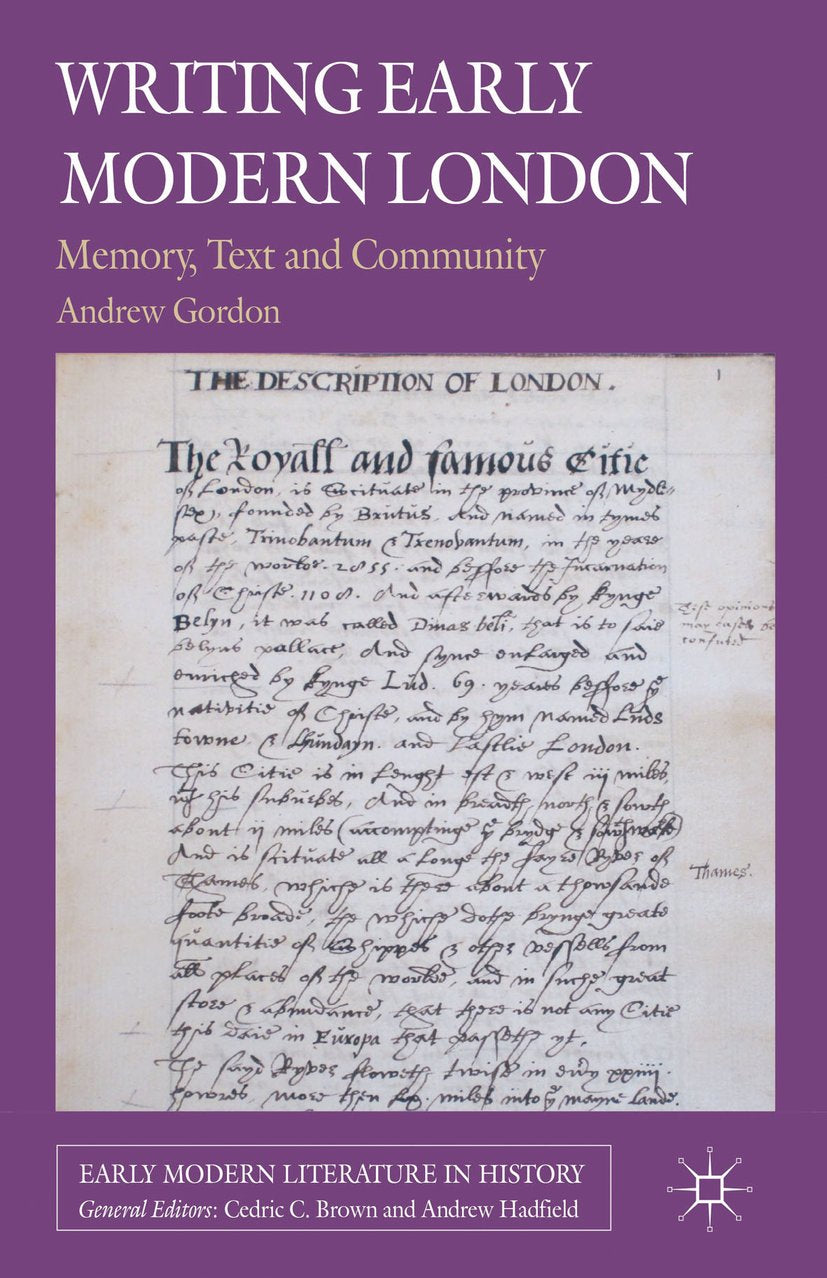 WRITING EARLY
MODERN LONDON
Memory, Text and Community
Andrew Gordon
THE DESCRIPTION OF LONDON.
1
The Royall and famous Citie
of London, is Scituate in the province of Mydl=
sex, founded by Brutus. And named in tymes
paste, Trinobantum & Trenovantum, in the yeare
of the worlde. 2855. and beffore the Incarnation
of Christe. 1108. And afterwards by kynge
Belyn, it was called Dinas beli, that is to saie
belyns pallace, And synce enlarged and
enriched by kynge Lud. 69. yeares beffore yͤ
nativitie of Christe, and by hym named Luds
towne & Lhundayn. and Lastlie London.
These opinions
may easely be
confuted
This Citie is in lenght est & west iij miles,
wᵗʰ his suburbes, And in breadth, north & sowth
about ij miles (accomptinge yͤ brydge & sowthwarke)
And is scituate all a longe the fayre Ryver of
Thames, whiche is there about a thowsande
Thames.
foote broade, the whiche dothe brynge greate
quantitie of Shippes & other vessells from
all places of the worlde, and in suche great
store & abundance, that there is not any Citie
this daie in Europa that passeth yt.
The sayd Ryver floweth twise in every xxiiii.
howres, more then miles into yͤ mayne lande.
EARLY MODERN LITERATURE IN HISTORY
General Editors: Cedric C. Brown and Andrew Hadfield